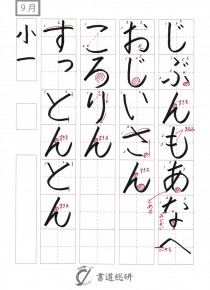 9月
じぶんもあなへ
おじいさん
ころりん
すっとんとん
小一
書道総研